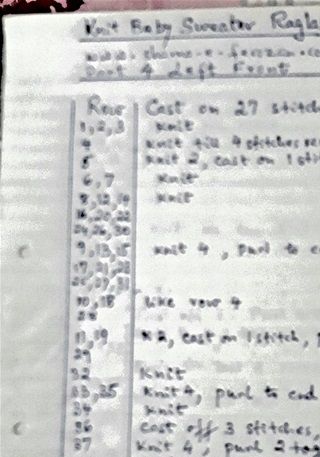 Knit Baby Sweater Ragla
Part 4 Left Front
Row Cast on 27 stitch
1,2,3 Knit
4 Knit till 4 stitches re
5 Knit 2, cast on 1 sti
6,7 Knit
8,12,14 Knit
16,20,22
24,26,30
9,13,15 Knit 4, Purl to e
17,21,23
10,18 Like row 4
28
11,19 K2, cast on 1 stitch,
29
32 Knit
33,35 Knit 4, purl to end
34 Knit
36 Cast off 3 stitches,
37 Knit 4, purl 2 tog